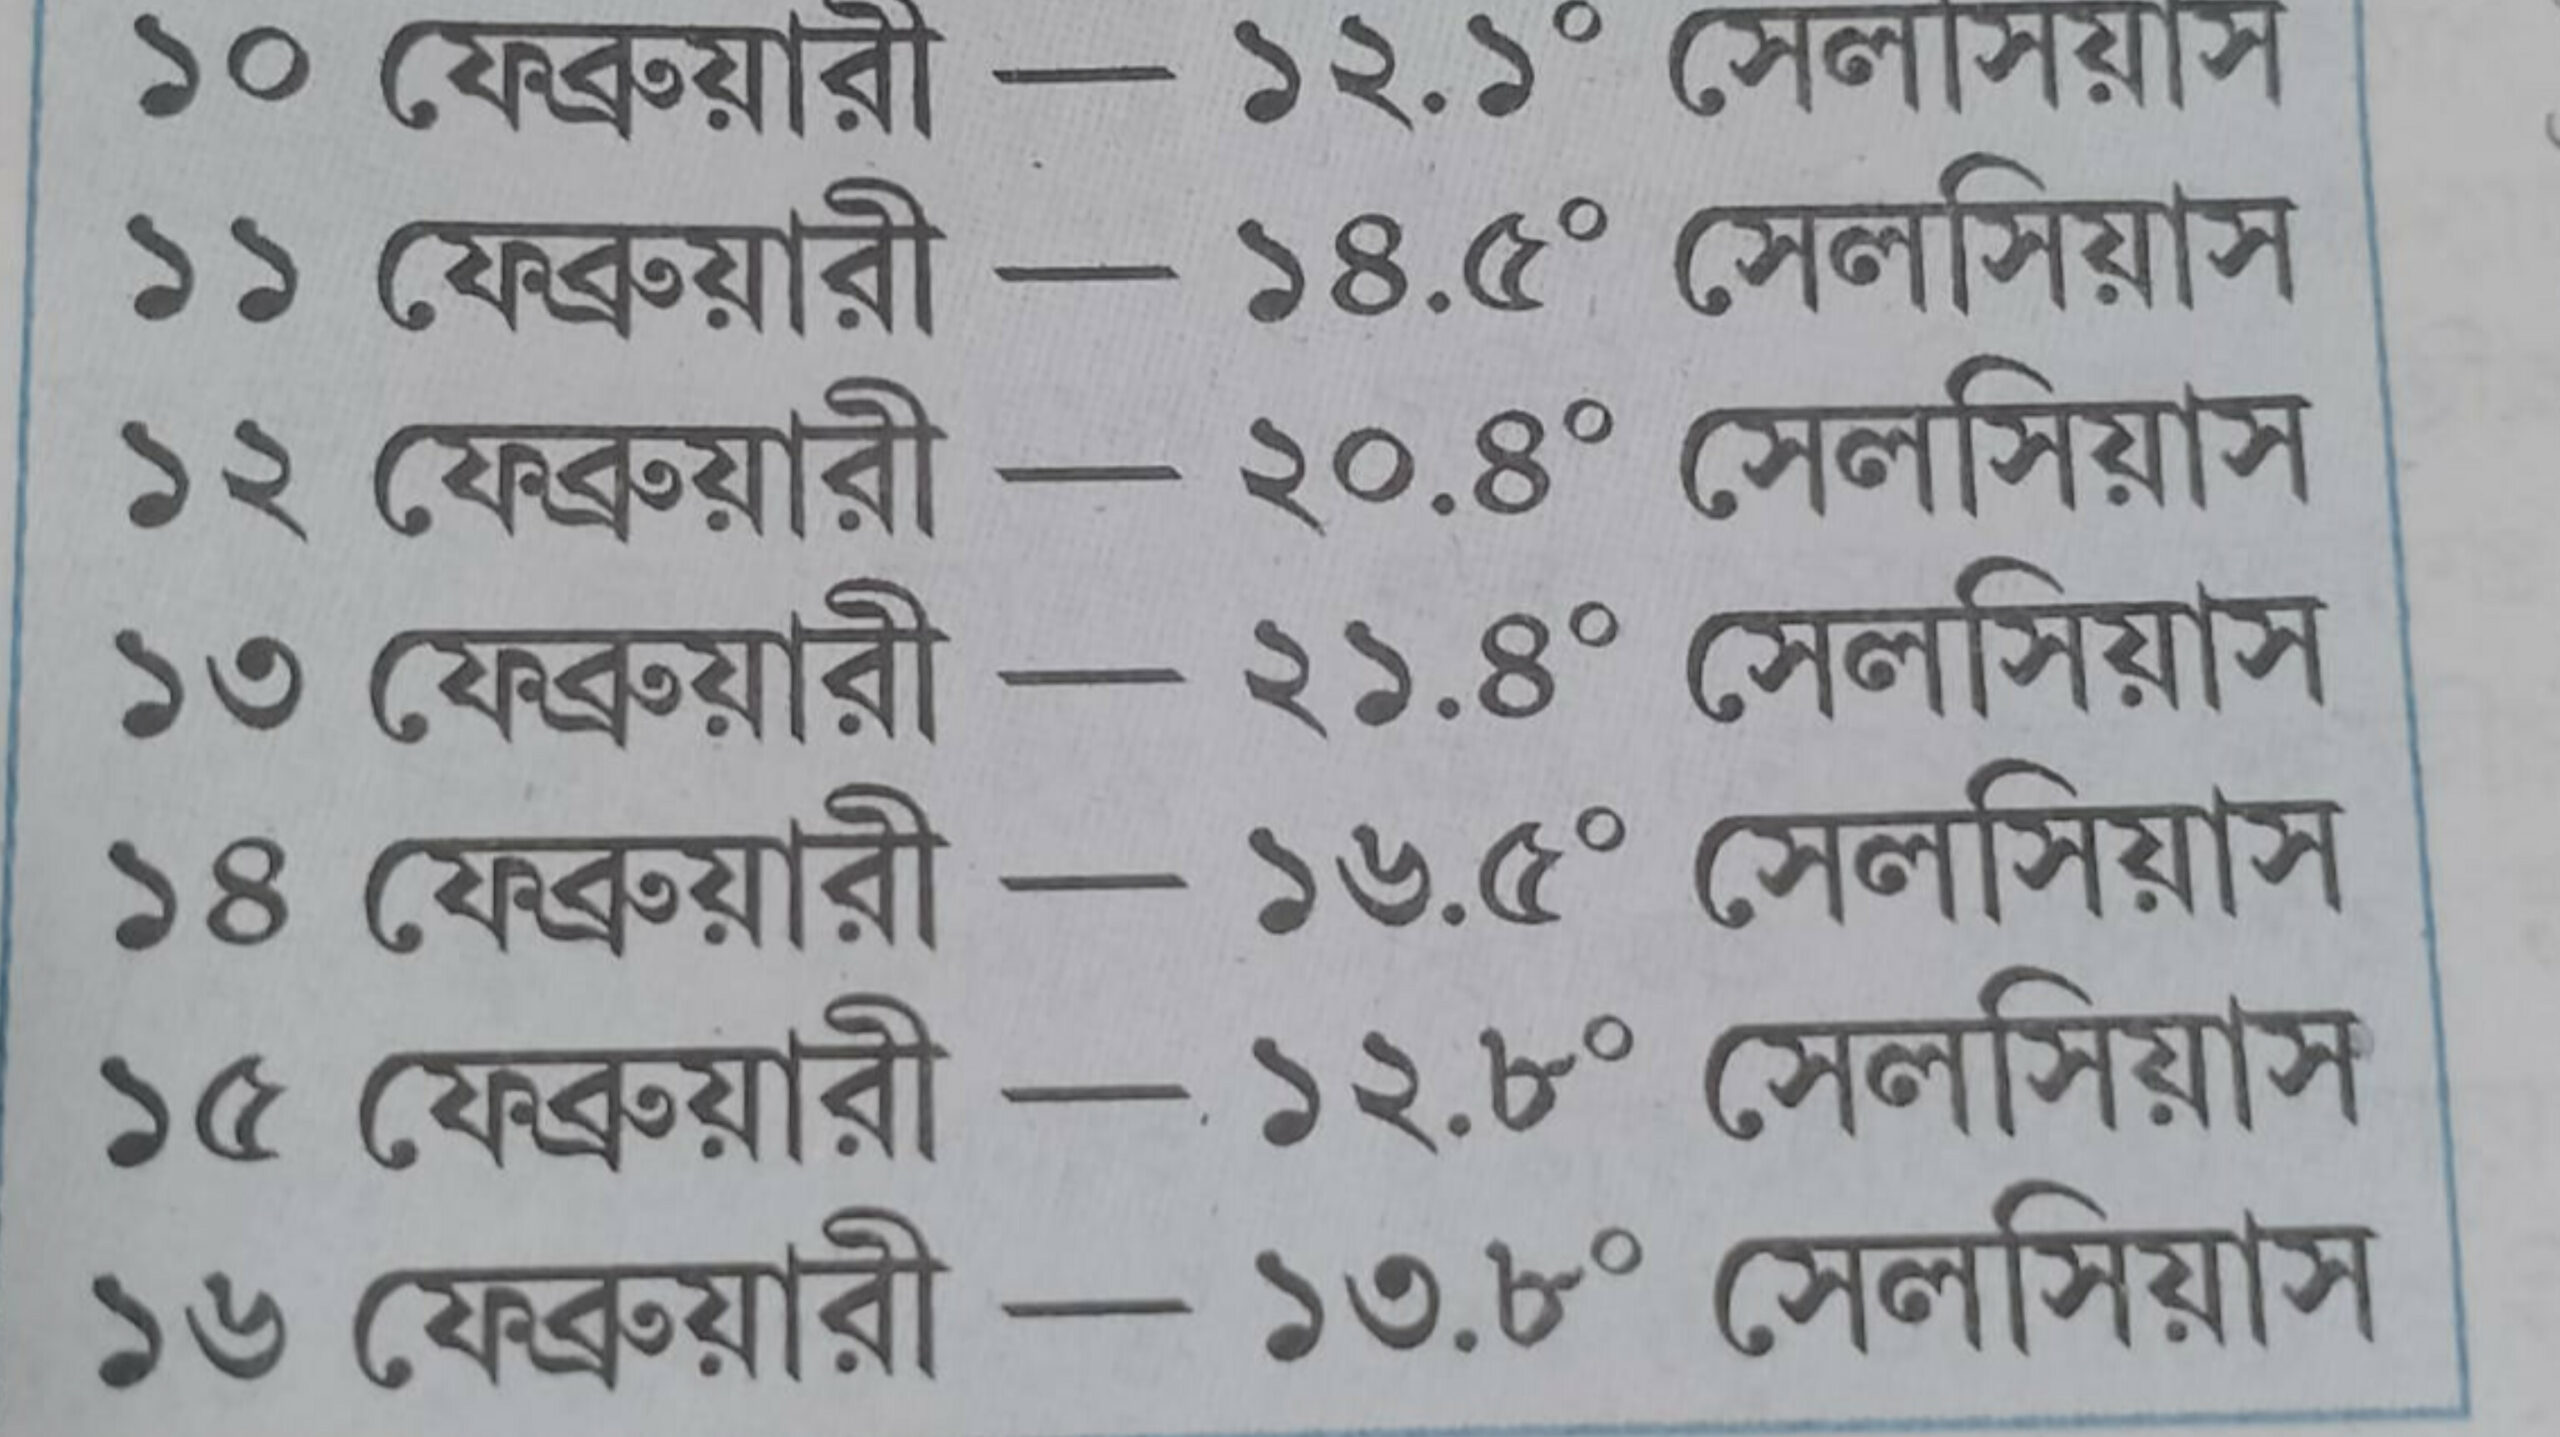 ১০ ফেব্রুয়ারী — ১২.১° সেলসিয়াস
১১ ফেব্রুয়ারী — ১৪.৫° সেলসিয়াস
১২ ফেব্রুয়ারী — ২০.৪° সেলসিয়াস
১৩ ফেব্রুয়ারী — ২১.৪° সেলসিয়াস
১৪ ফেব্রুয়ারী — ১৬.৫° সেলসিয়াস
১৫ ফেব্রুয়ারী — ১২.৮° সেলসিয়াস
১৬ ফেব্রুয়ারী — ১৩.৮° সেলসিয়াস